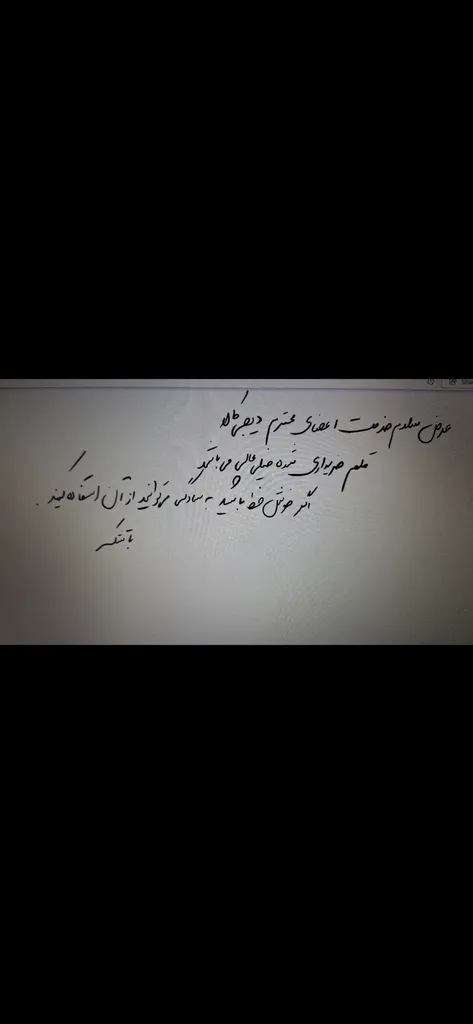 عرض سلام خدمت اعضای محترم دیجی کالا
قلم خریداری شده خیلی عالی می باشد
اگر خوش خط باشید به سادگی میتوانید از آن استفاده کنید.
با تشکر